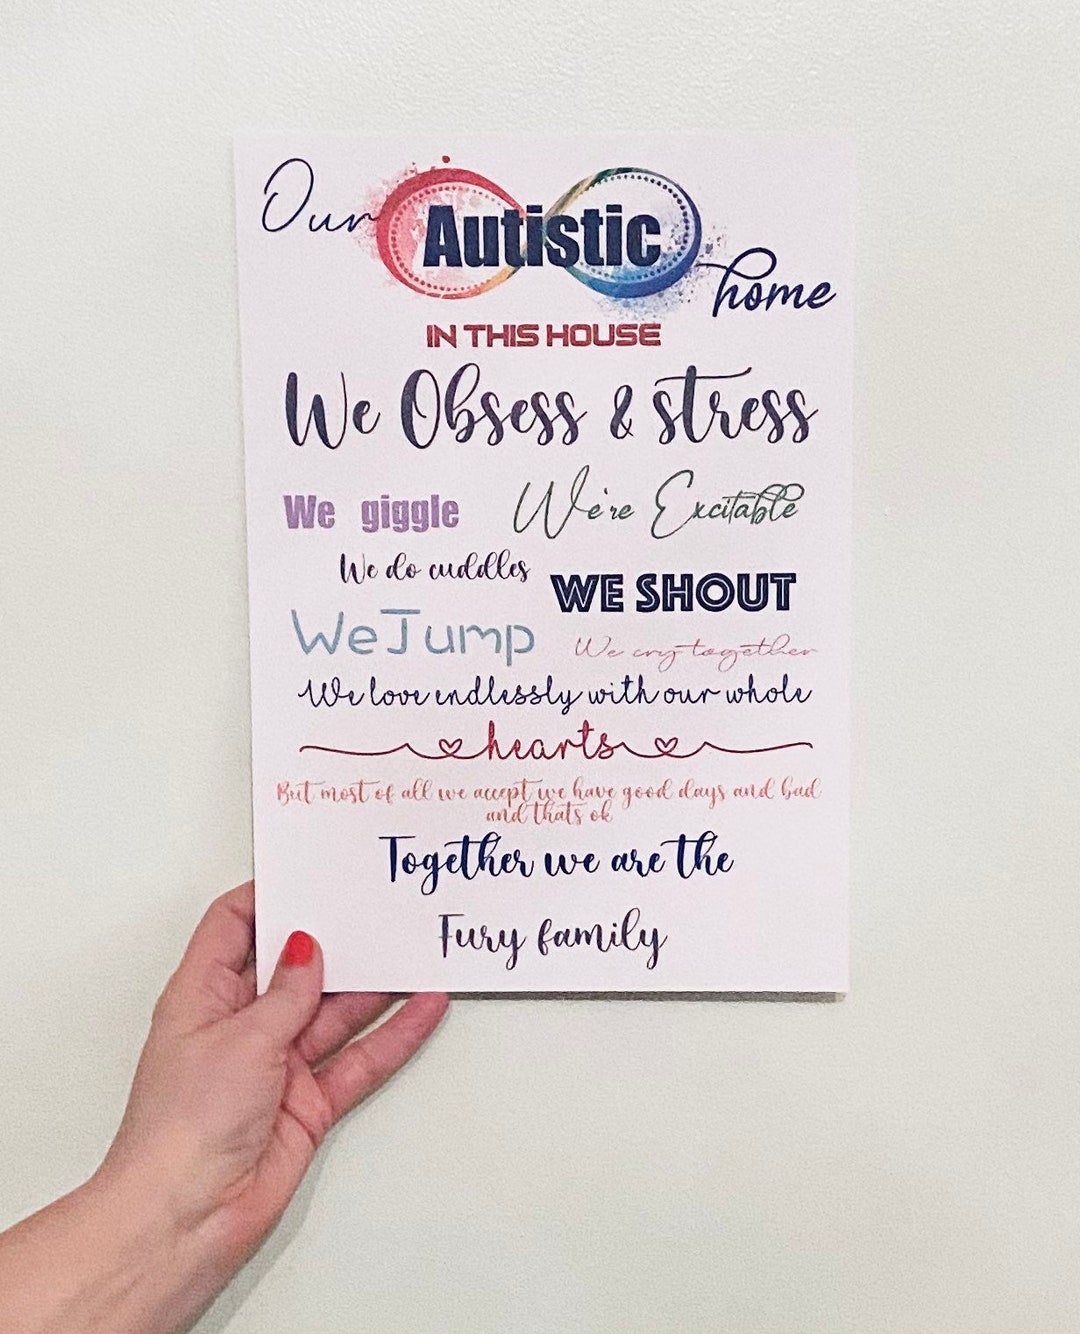 Our Autistic home
IN THIS HOUSE
We Obsess & stress
We giggle
We're Excitable
We do cuddles
WE SHOUT
We Jump
We cry together
We love endlessly with our whole
hearts
But most of all we accept we have good days and bad
and thats ok
Together we are the
Fury family